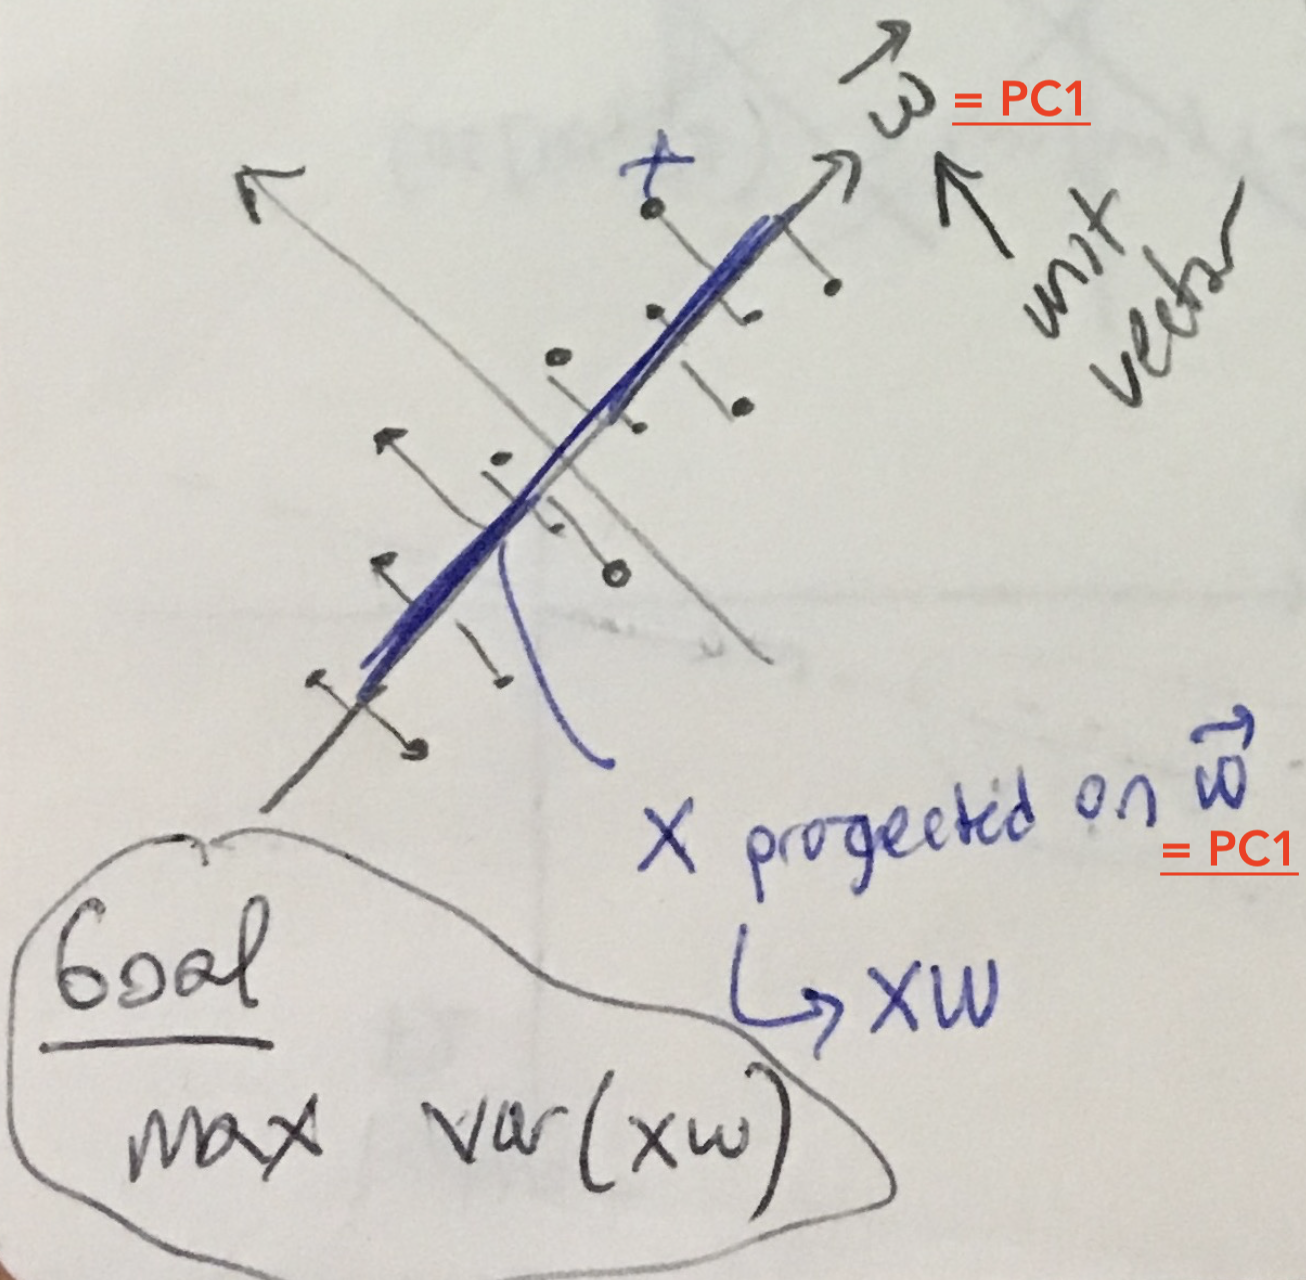 w⃗ = PC1
unit
vector
x
x progected on w⃗
= PC1
xw
Goal
max var(xw)